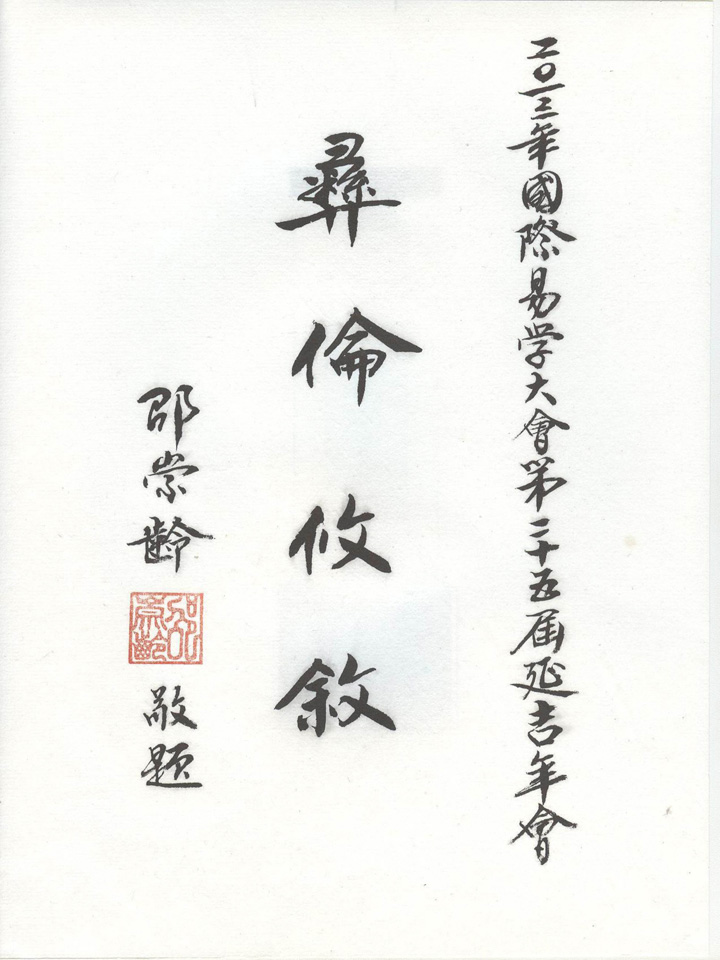 二〇一二年國際易学大會第二十五届延吉年會
彝倫攸敘
邵崇齡
邵崇齡
敬題